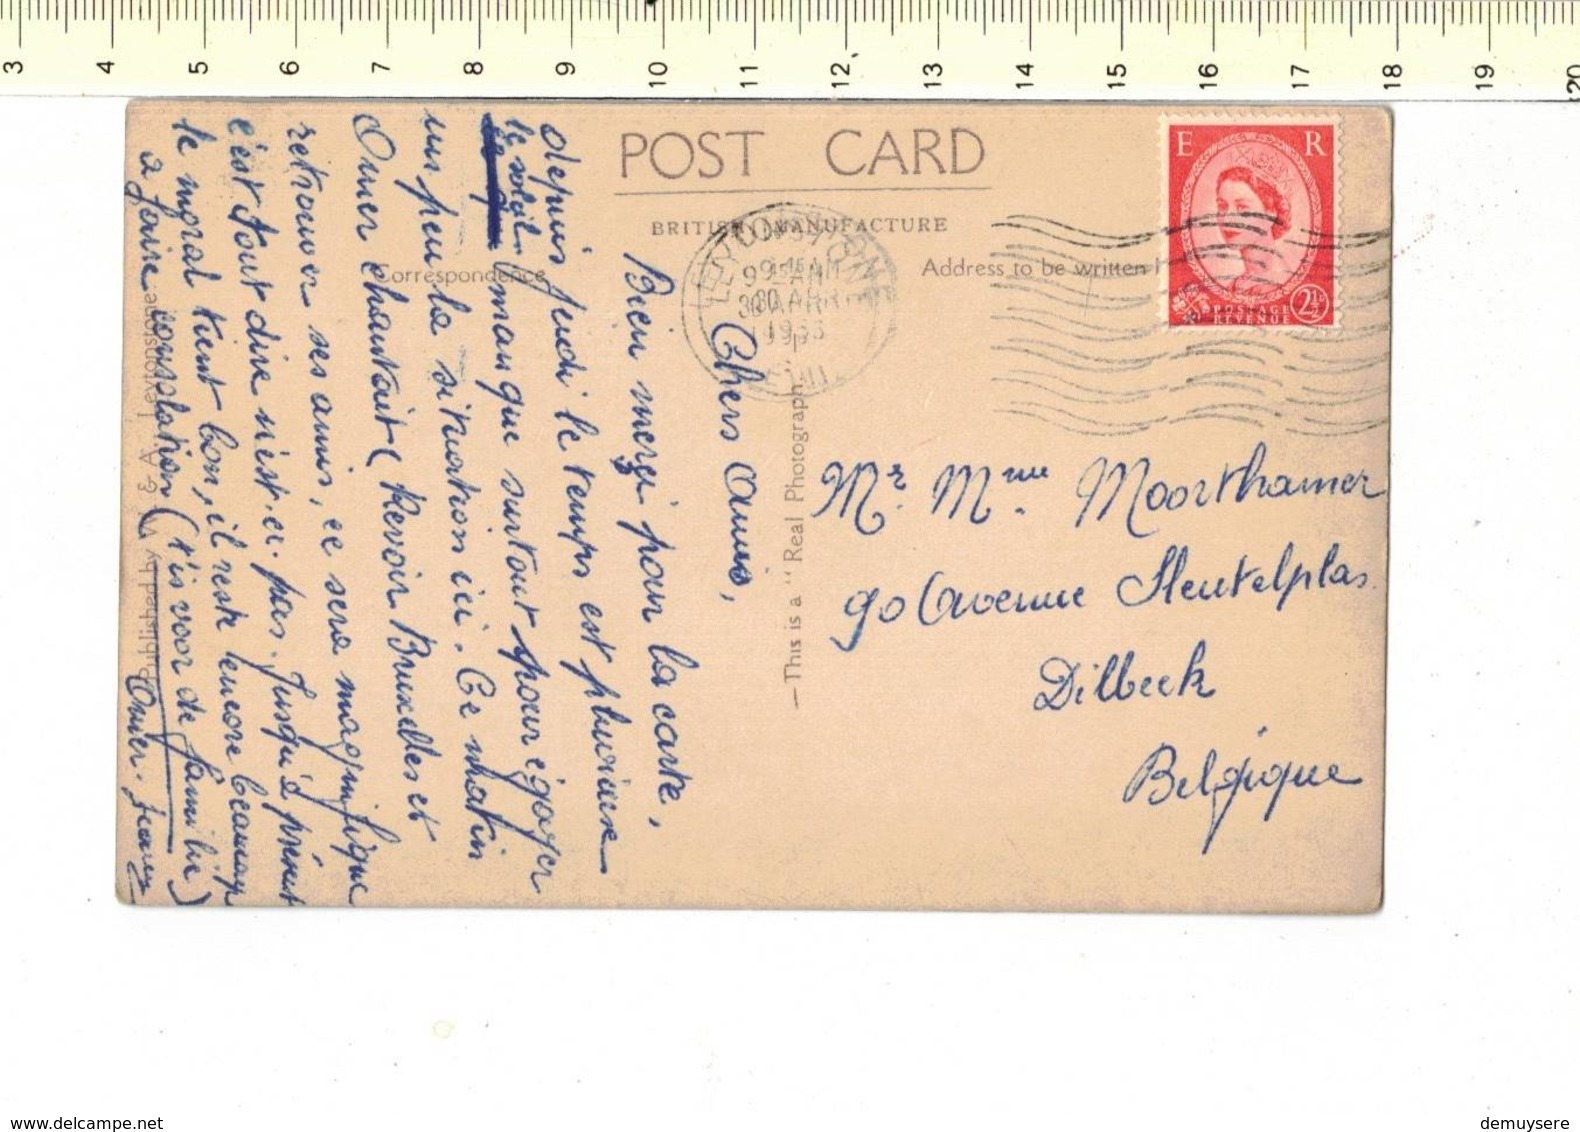 3 4 5 6 7 8 9 10 11 12 13 14 15 16 17 18 19 20
POST CARD
BRITISH MANUFACTURE
Correspondence
Address to be written
E R
POSTAGE
REVENUE
2½D
9 15 AM
30 MAR
—This is a "Real Photograph"
Published by
Chers Amis,
Bien merçi pour la carte,
depuis jeudi le temps est pluvieux
le soleil manque surtout pour égayer
un peu la situation ici. Ce matin
Omer chantait (Revoir Bruxelles et
retrouver ses amis, ce sera magnifique
c'est tout dire n'est-ce pas. Jusqu'à présent
le moral tient bon, il reste encore beaucoup
à faire consolation ('t is voor de familie)
Omer.
Mr. Mme. Moorthamer
90 Avenue Sleutelplas
Dilbeek
Belgique
demuysere